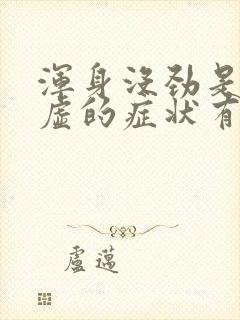 渾身沒勁是
虛的症狀有
盧邁